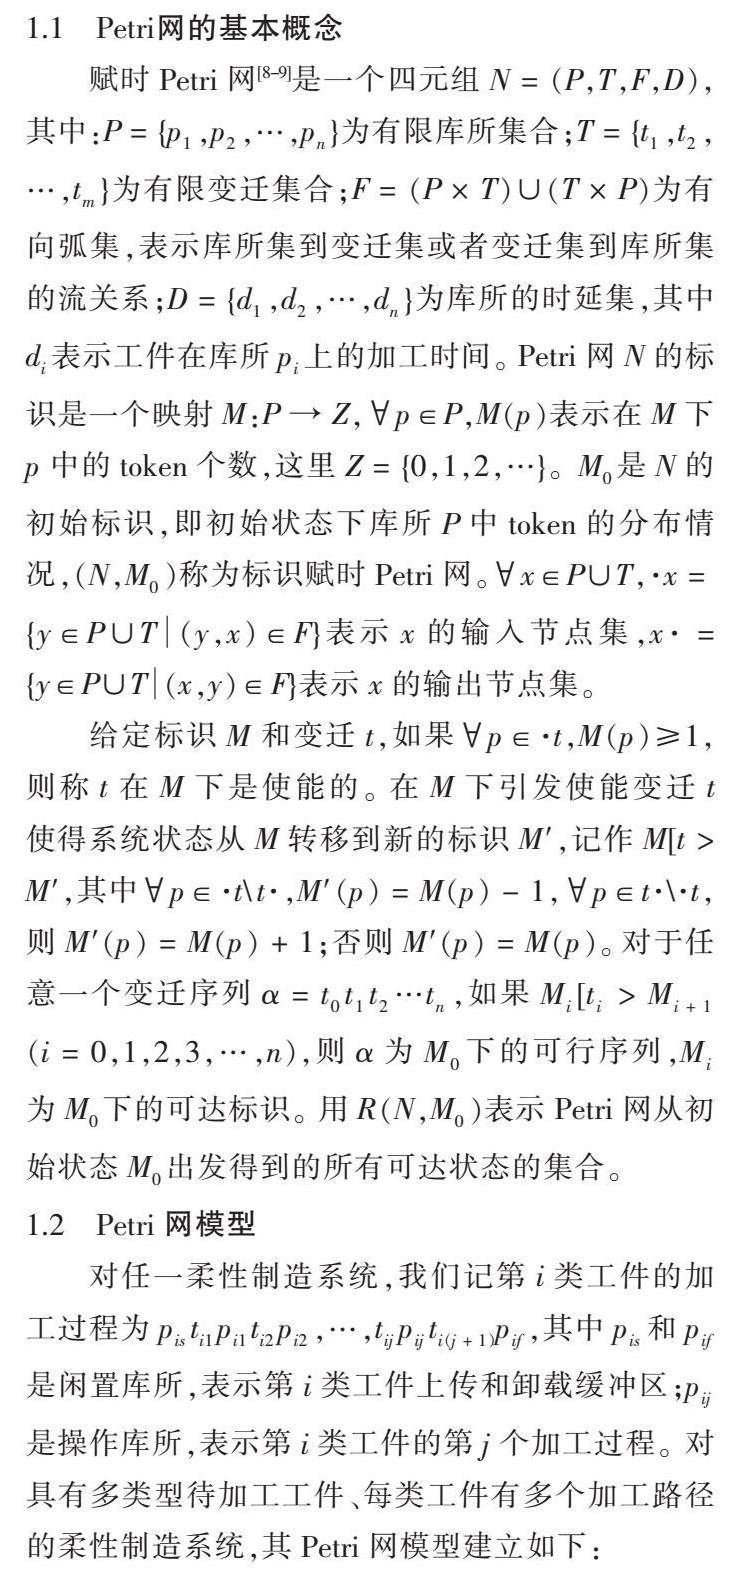 1.1 Petri网的基本概念
赋时 Petri 网[8-9]是一个四元组 N = (P,T,F,D),
其中:P = {p1,p2,⋯,pn}为有限库所集合;T = {t1,t2,
⋯,tm}为有限变迁集合;F = (P × T)∪(T × P)为有
向弧集,表示库所集到变迁集或者变迁集到库所集
的流关系;D = {d1,d2,⋯,dn}为库所的时延集,其中
di表示工件在库所 pi上的加工时间。Petri 网 N 的标
识是一个映射 M:P → Z,∀p∈P,M(p)表示在 M 下
p 中的 token 个数,这里 Z = {0,1,2,⋯}。M0是 N 的
初始标识,即初始状态下库所 P 中 token 的分布情
况,(N,M0)称为标识赋时 Petri 网。∀x∈P∪T,·x =
{y∈P∪T|(y,x)∈F}表示 x 的输入节点集,x· =
{y∈P∪T|(x,y)∈F}表示 x 的输出节点集。
给定标识 M 和变迁 t,如果∀p∈·t,M(p)≥1,
则称 t 在 M 下是使能的。在 M 下引发使能变迁 t
使得系统状态从 M 转移到新的标识 M′,记作 M[t >
M′,其中∀p∈·t\t·,M′(p) = M(p) − 1,∀p∈t·\·t,
则 M′(p) = M(p) + 1;否则 M′(p) = M(p)。对于任
意一个变迁序列 α = t0t1t2⋯tn,如果 Mi[ti > Mi+1
(i = 0,1,2,3,⋯,n),则 α 为 M0下的可行序列,Mi
为 M0下的可达标识。用 R(N,M0)表示 Petri 网从初
始状态 M0出发得到的所有可达状态的集合。
1.2 Petri 网模型
对任一柔性制造系统,我们记第 i 类工件的加
工过程为 pisti1pi1ti2pi2,⋯,tijpijti(j+1)pif,其中 pis和 pif
是闲置库所,表示第 i 类工件上传和卸载缓冲区;pij
是操作库所,表示第 i 类工件的第 j 个加工过程。对
具有多类型待加工工件、每类工件有多个加工路径
的柔性制造系统,其 Petri 网模型建立如下: